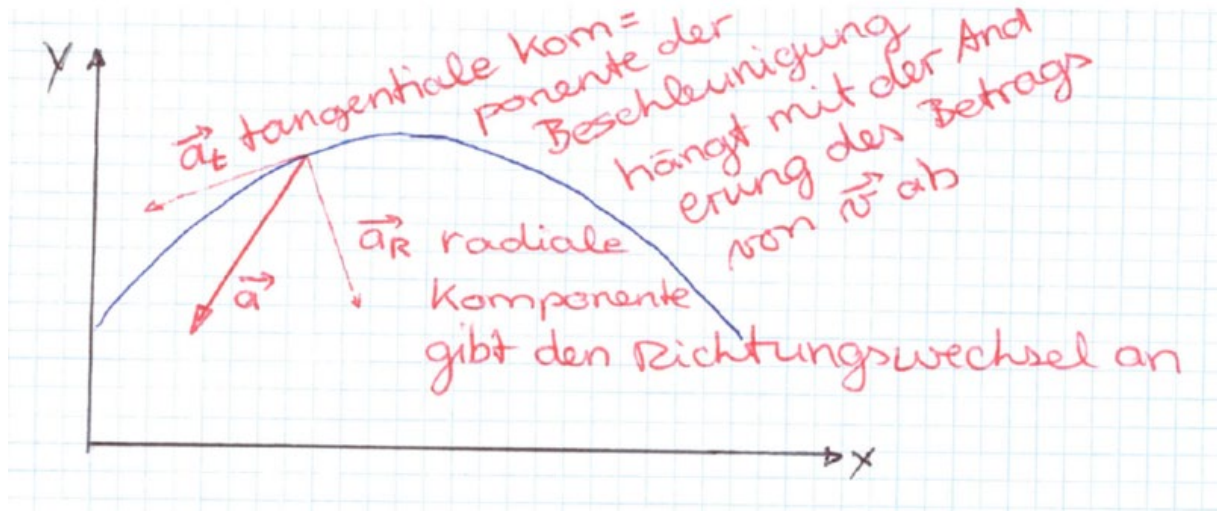 y
a⃗t tangentiale Kom=
ponente der
Beschleunigung
hängt mit der And
erung des Betrags
von v⃗ ab
a⃗R radiale
Komponente
gibt den Richtungswechsel an
a⃗
x